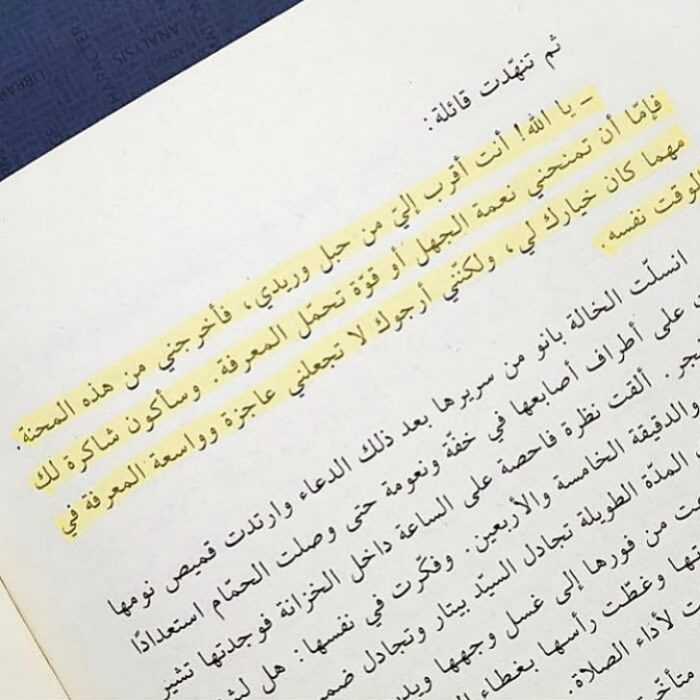 ثم تنهّدت قائلة:
– يا الله! أنت أقرب إليّ من حبل وريدي، فأخرجني من هذه المحنة.
فإمّا أن تمنحني نعمة الجهل أو قوّة تحمّل المعرفة. وسأكون شاكرة لك
مهما كان خيارك لي، ولكنّني أرجوك لا تجعلني عاجزة وواسعة المعرفة في
الوقت نفسه.
انسلّت الخالة بانو من سريرها بعد ذلك الدعاء وارتدت قميص نومها
على أطراف أصابعها في خفّة ونعومة حتى وصلت الحمّام استعدادًا
ألقت نظرة فاحصة على الساعة داخل الخزانة فوجدتها تشير
والدقيقة الخامسة والأربعين. وفكّرت في نفسها: هل
المدّة الطويلة تجادل السيّد بيتار وتجادل
من فورها إلى غسل وجهها
وغطّت رأسها بغطاء
لأداء الصلاة
LIBRAR
ANALYSIS